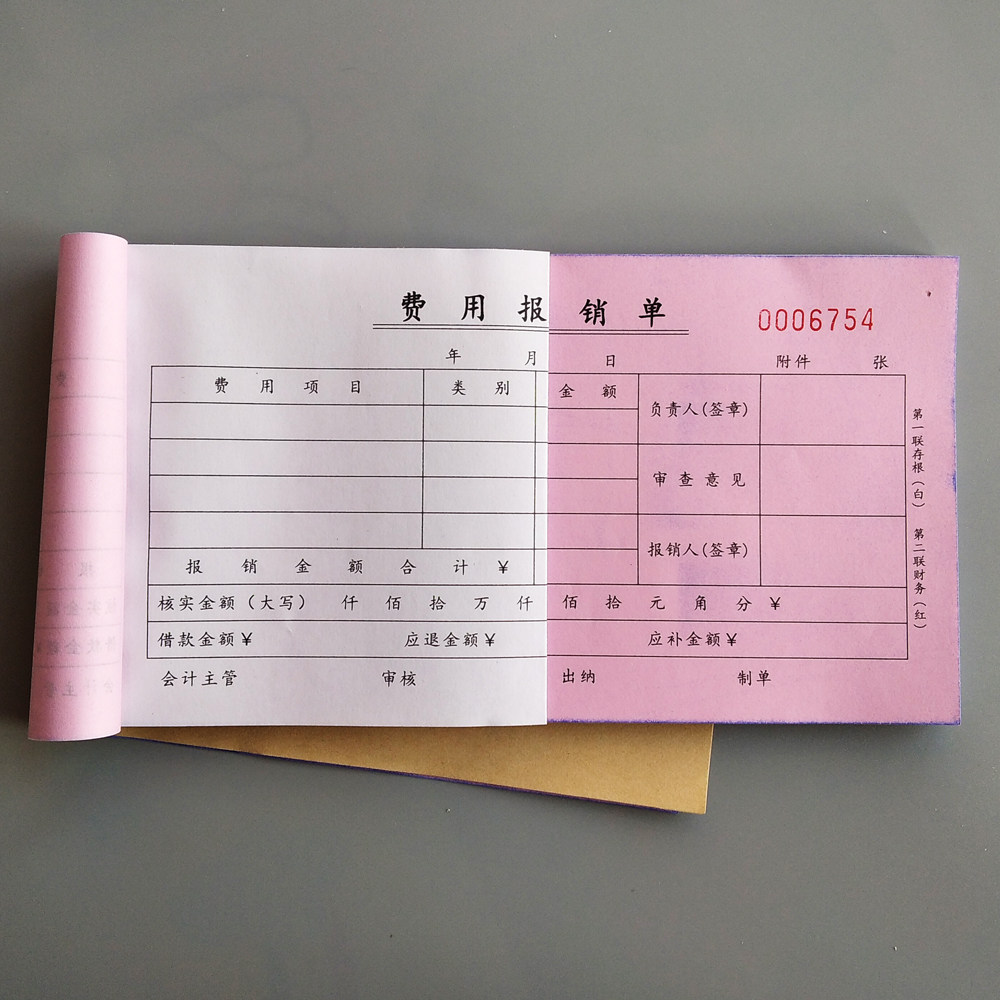 费用报销单
0006754
年 月 日 附件 张
费用项目 类别 金额
负责人(签章)
审查意见
报销人(签章)
报销金额合计 ¥
核实金额(大写) 仟 佰 拾 万 仟 佰 拾 元 角 分 ¥
借款金额¥ 应退金额¥ 应补金额¥
会计主管 审核 出纳 制单
第一联存根(白) 第二联财务(红)